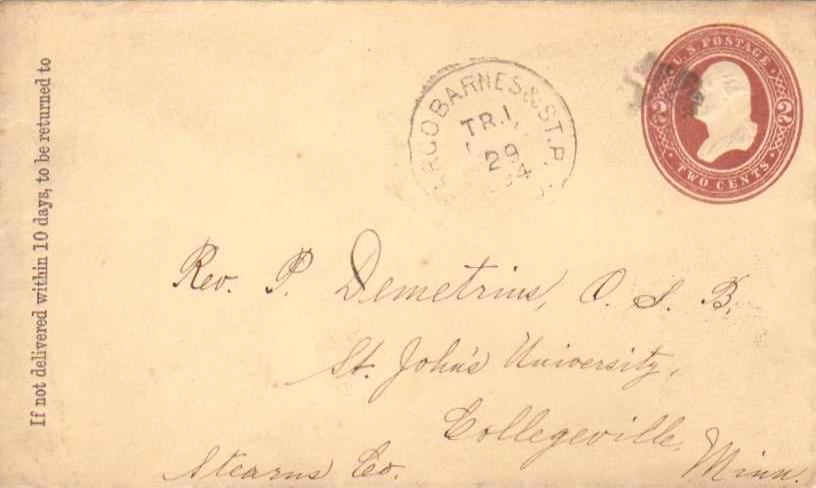 If not delivered within 10 days, to be returned to
U.S. POSTAGE
2 2
TWO CENTS
ARGO BARNES & ST. P.
TR. 1,
29
4
Rev. P. Demetrius, O. S. B.
St. John's University,
Collegeville,
Stearns Co. Minn.